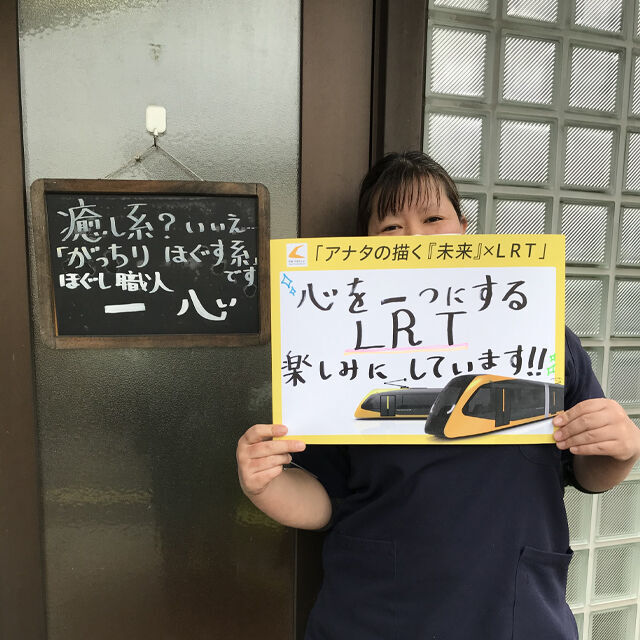 癒し系?いいえ…
「がっちりほぐす系」
です
ほぐし職人
一心
「アナタの描く『未来』×LRT」
心を一つにする
LRT
楽しみにしています!!